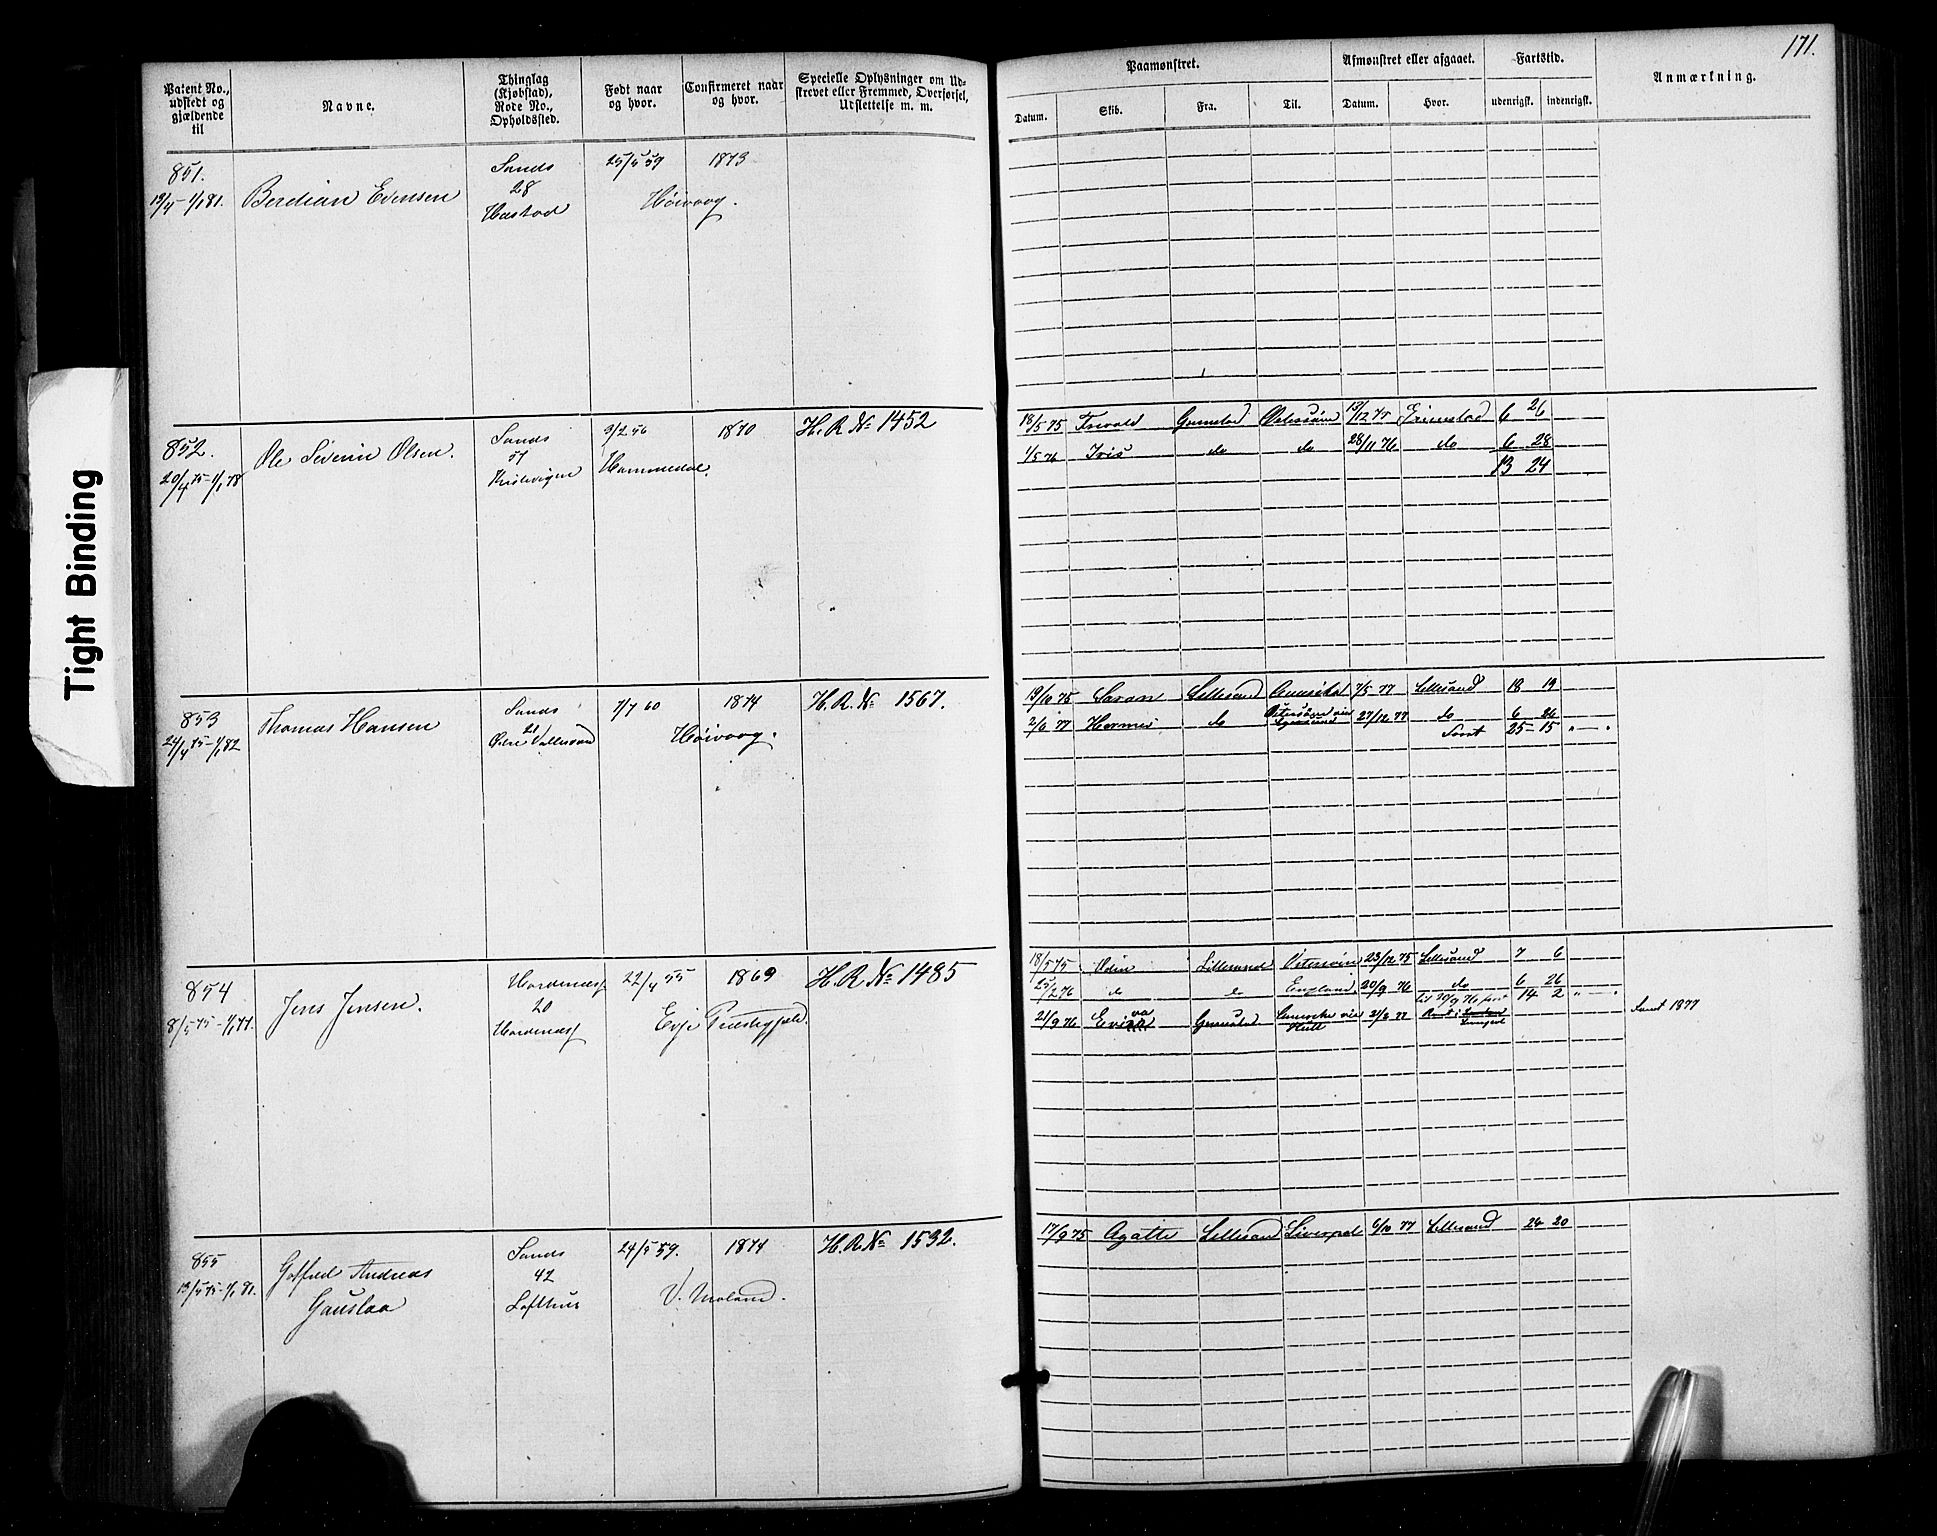 171.
Patent No., udstedt og gjældende til
Navne.
Thinglag (Kjøbstad), Rode No., Opholdssted.
Født naar og hvor.
Confirmeret naar og hvor.
Specielle Oplysninger om Udskrevet eller Fremmed, Overførsel, Udslettelse m. m.
Paamønstret.
Datum. Skib. Fra. Til.
Afmønstret eller afgaaet.
Datum. Hvor.
Fartstid.
udenrigsk. indenrigsk.
Anmærkning.
Tight Binding
851.
Berdian Evensen
Sands
28
25/5 59
1873
Høivaag.
852.
20/4 75 - 1/1 78
Ole Severin Olsen.
Sands
9/2 56
1870
H.R. No 1452
18/5 75 Grimstad Østersøen 13/12 75 Grimstad 6 26
1/5 76 Iris do do 28/11 76 do 6 28
13 24
853
24/4 75 - 1/1 82
Thomas Hansen
Sands
7/7 60
1874
Høivaag.
H.R. No 1567.
19/10 75 Lillesand 7/5 77 Lillesand 18 19
2/6 77 Hermes do 27/12 77 do 6 26
25 - 15 " — "
854
8/5 75 - 1/1 77.
Jens Jensen.
20
22/4 55
1869
Evje Præstegjeld.
H.R. No 1485
18/5 75 Odin Lillesand Østersøen 23/12 75 Lillesand 7 6
25/2 76 do do England 20/9 76 do 6 26
14 2 " — "
21/9 76 Grimstad Amerika via Hull 21/6 77
1877
855
13/5 75 - 1/1 81.
Gotfred Andreas
Gauslaa
Sands
42
Lofthus
24/5 59.
1874
V. Moland.
H.R. No 1532.
17/9 75 Agatte Lillesand Liverpool 6/10 77 Lillesand 24 20